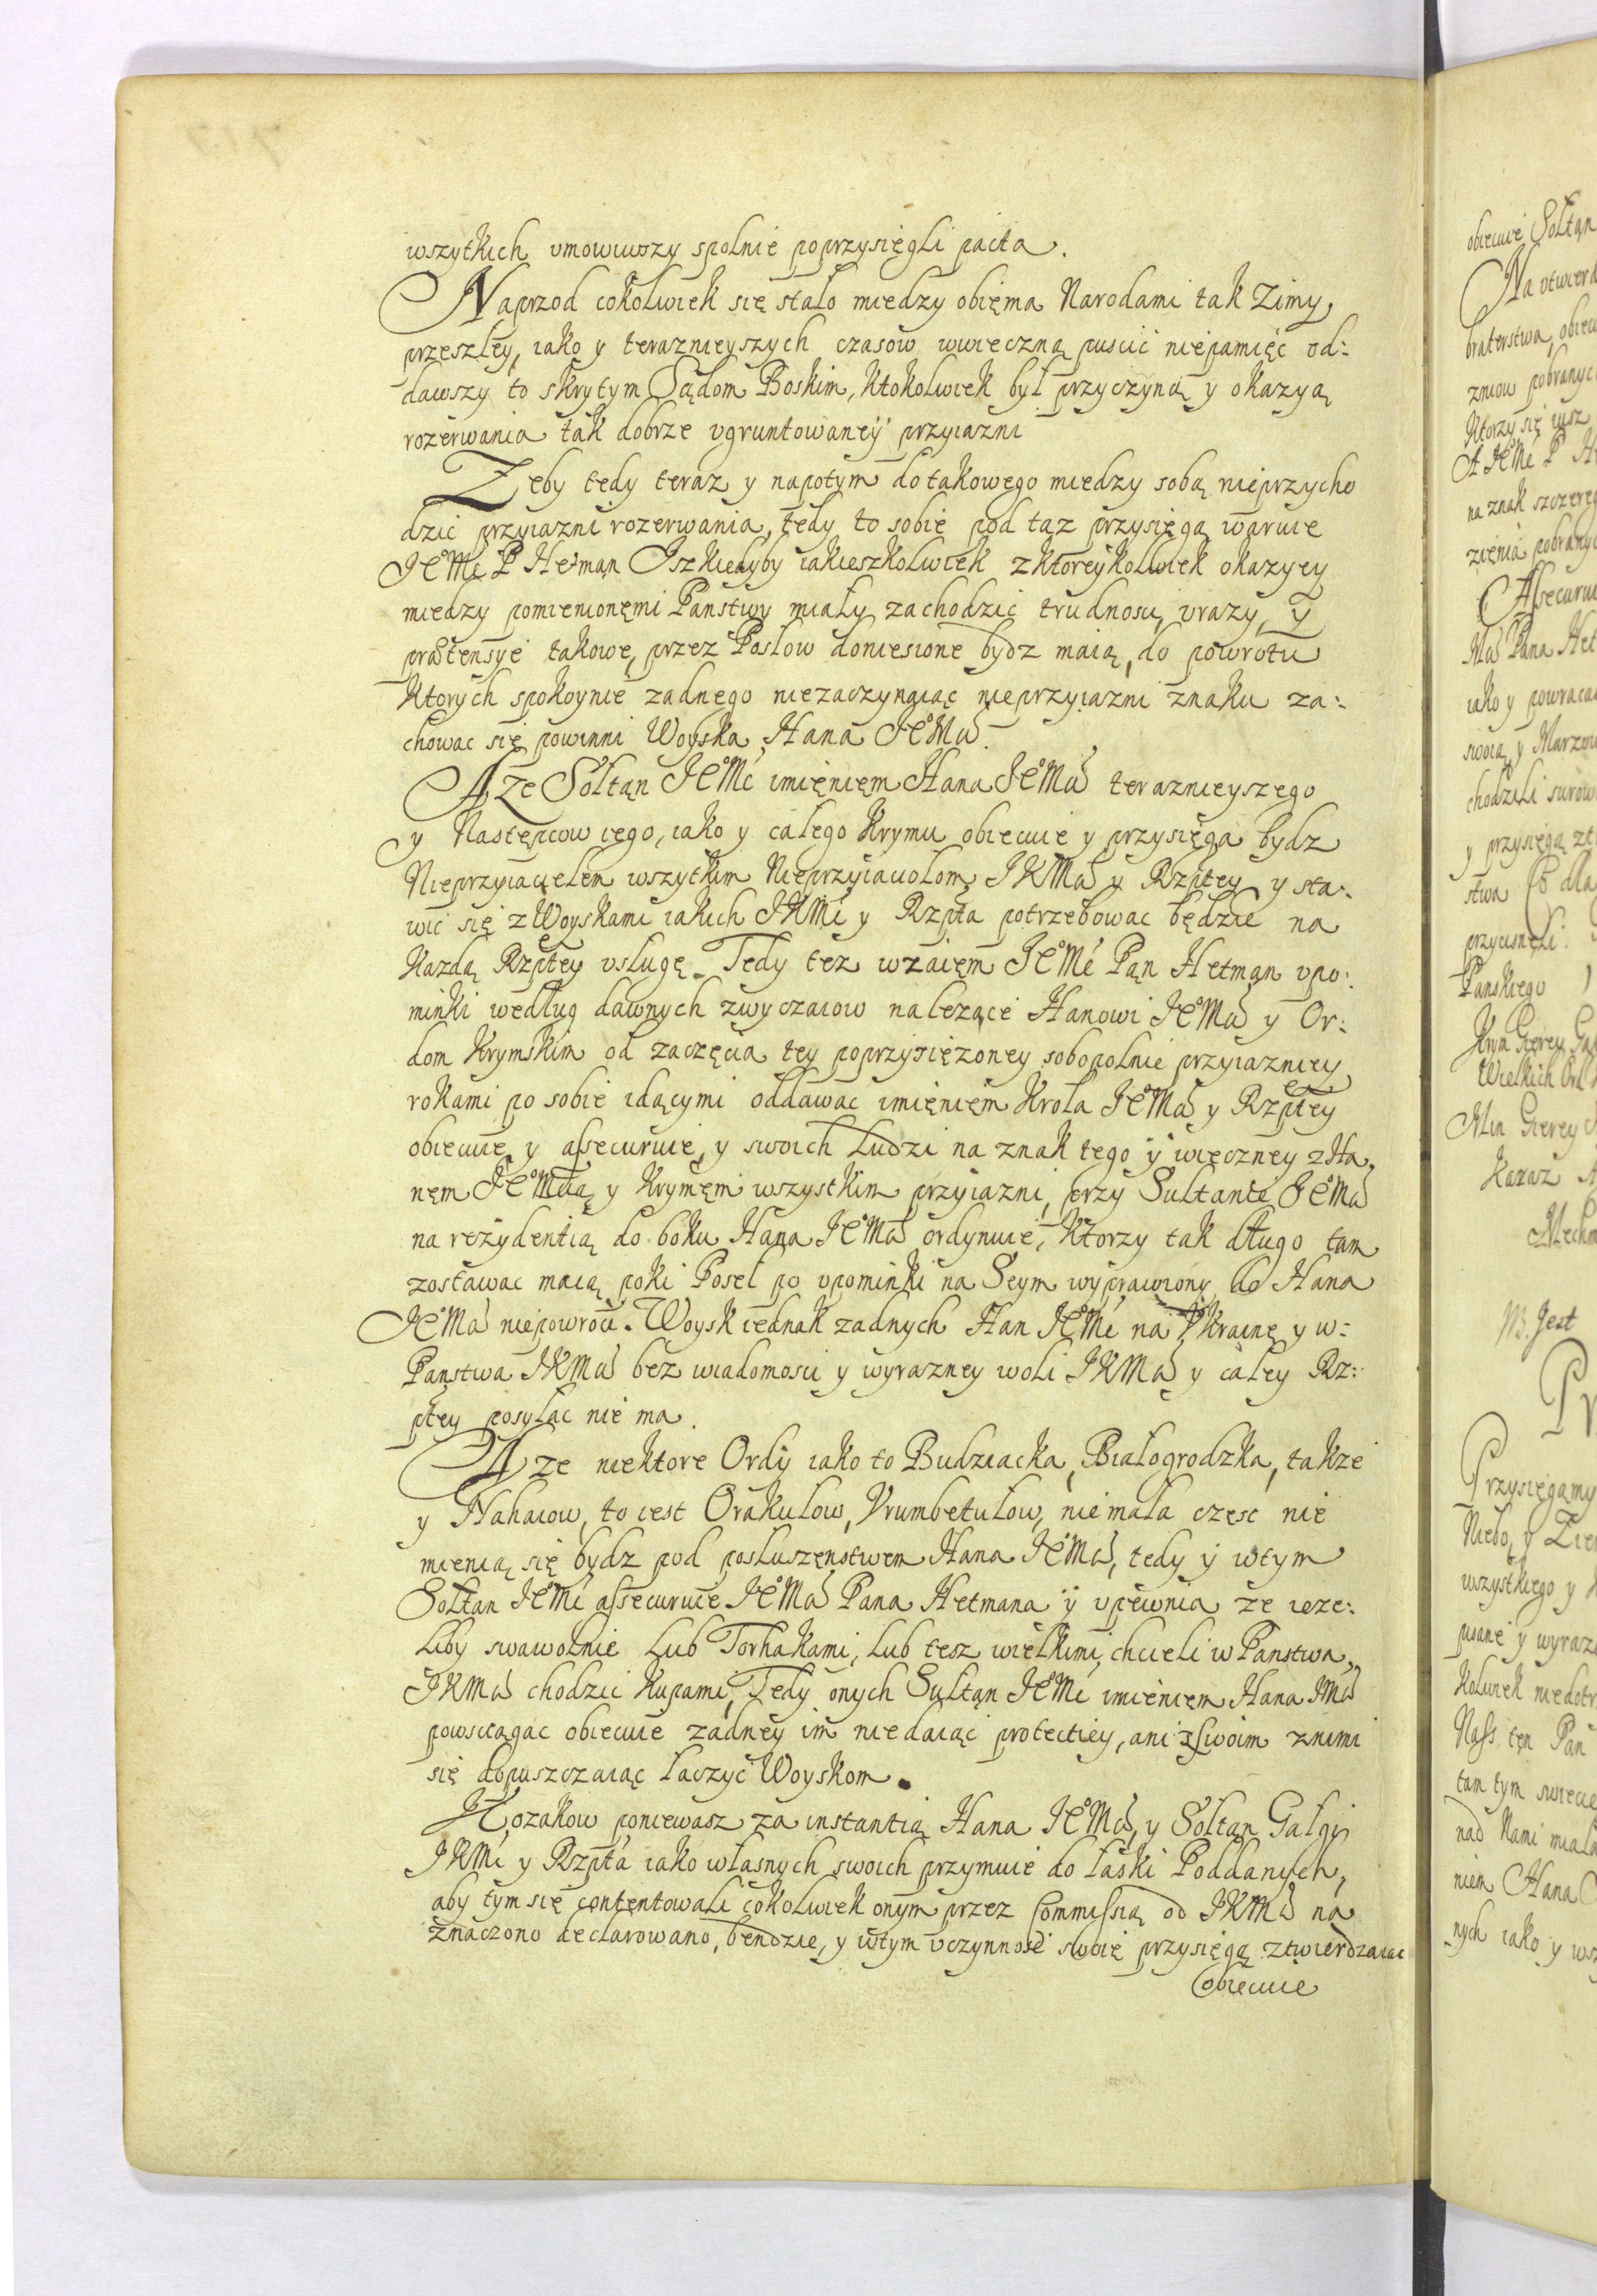 wszytkich vmowiwszy spolnie poprzysięgli pacta.
Naprzod cokolwiek się stało miedzy obięma Narodami tak Zimy
przeszłey, iako y teraznieyszych czasow wwieczną puscić niepamięć od:
dawszy to skrytym Sądom Boskim, ktokolwiek był przyczyną y okazyą
rozerwania tak dobrze vgruntowaney przyiazni
Zeby tedy teraz y napotym do takowego miedzy sobą nieprzycho
dzić przyiazni rozerwania, tedy to sobie pod taz przysięgą waruie
JeMć P Hetman Iszkiedyby iakieszkolwiek zktoreykolwiek okazyey
miedzy pomienionęmi Panstwy miały zachodzić trudnosci, vrazy, y
prætensye takowe, przez Posłow doniesione bydz maią, do powrotu
ktorych spokoynie zadnego niezaczynaiąc nieprzyiazni znaku za:
chowac się powinni Woyska Hana JeMci.
A ze Sołtąn JeMć imięnięm Hana JeMci teraznieyszego
y Następcow iego, iako y całego Krymu obiecuie y przysięga bydz
Nieprzyiacięlem wszytkim Nieprzyiaciolom JKMci y Rzptey y sta:
wić się z Woyskami iakich JKMć y Rzpta potrzebowac będzie na
Kazdą Rzptey vsługę. Tedy tez wzaięm JeMć Pąn Hetmąn vpo:
minki według dawnych zwyczaiow nalezące Hanowi JeMci y Or:
dom Krymskim od zaczęcia tey poprzysięzoney sobopolnie przyiazniey
rokami po sobie idącymi oddawac imięniem Krola JeMci y Rzptey
obiecuie y assecuruie, y swoich Ludzi na znak tego y wieczney z Ha,
nęm JeMcią y Krymęm wszystkim przyiazni, przy Sułtanie JeMci
na rezydentią do boku Hana JeMci ordynuie, Ktorzy tak długo tam
zostawac maią poki Poseł po vpominki na Seym wyprawiony do Hana
JeMci niepowroci. Woysk iednak zadnych Han JeMć na Vkrainę y w:
Panstwa JKMci bez wiadomosci y wyrazney woli JKMci y całey Rz:
ptey posyłac nie ma.
A ze niektore Ordy iako to Budziacka, Białogrodzka, takze
y Nahaiow, to iest Orakułow, Vrumbetułow, niemała częsc nie
mienią się bydz pod posłuszęnstwem Hana JeMci, tedy y wtym
Sołtan JeMć assecuruie JeMci Pana Hetmana y vpewnia ze ieze:
liby swawolnie Lub Torhakami, Lub tesz wielkimi chcieli w Panstwa
JKMci chodzić Kupami, Tedy onych Sułtąn JeMć imieniem Hana JMci
powsciągac obiecuie zadney im niedaiąc protectiey, ani swoim znimi
się dopuszczaiąc łaczyć Woyskom.
Kozakow poniewasz za instantią Hana JeMci, y Sołtan Gałgi
JKMć y Rzpta iako własnych swoich przymuie do łaski Poddanych,
aby tym się contentowali cokolwiek onym przez Commissią od JKMci na
znaczono declarowano, bendzie, y wtym vczynnosć swoię przysięgą ztwierdzaiac
obiecuie
obiecuie Sołtąn
Na vtwierd
braterstwa, obiecu
zniow pobranyc
Ktorzy się iusz
A JeMć P He
na znak szczereg
zięnia pobranyc
Assecurui
Mci Pana Het
iako y powracai
swoią y Marzow
chodzili surow
y przysięgą zt
stwa Co dla
przycisnęli
Panskiego
Krym Gierey Gał
Wielkich Ord
Min Gierey
Karaz A
Mechm
NB. Jest
Pr
Przysięgamy
Niebo, y Ziem
wszystkiego y
pisane y wyraz
kolwiek niedotr
Nass tęn Pan
tan tym swiecie
nad Nami miała
niem Hana
nych iako y wsz